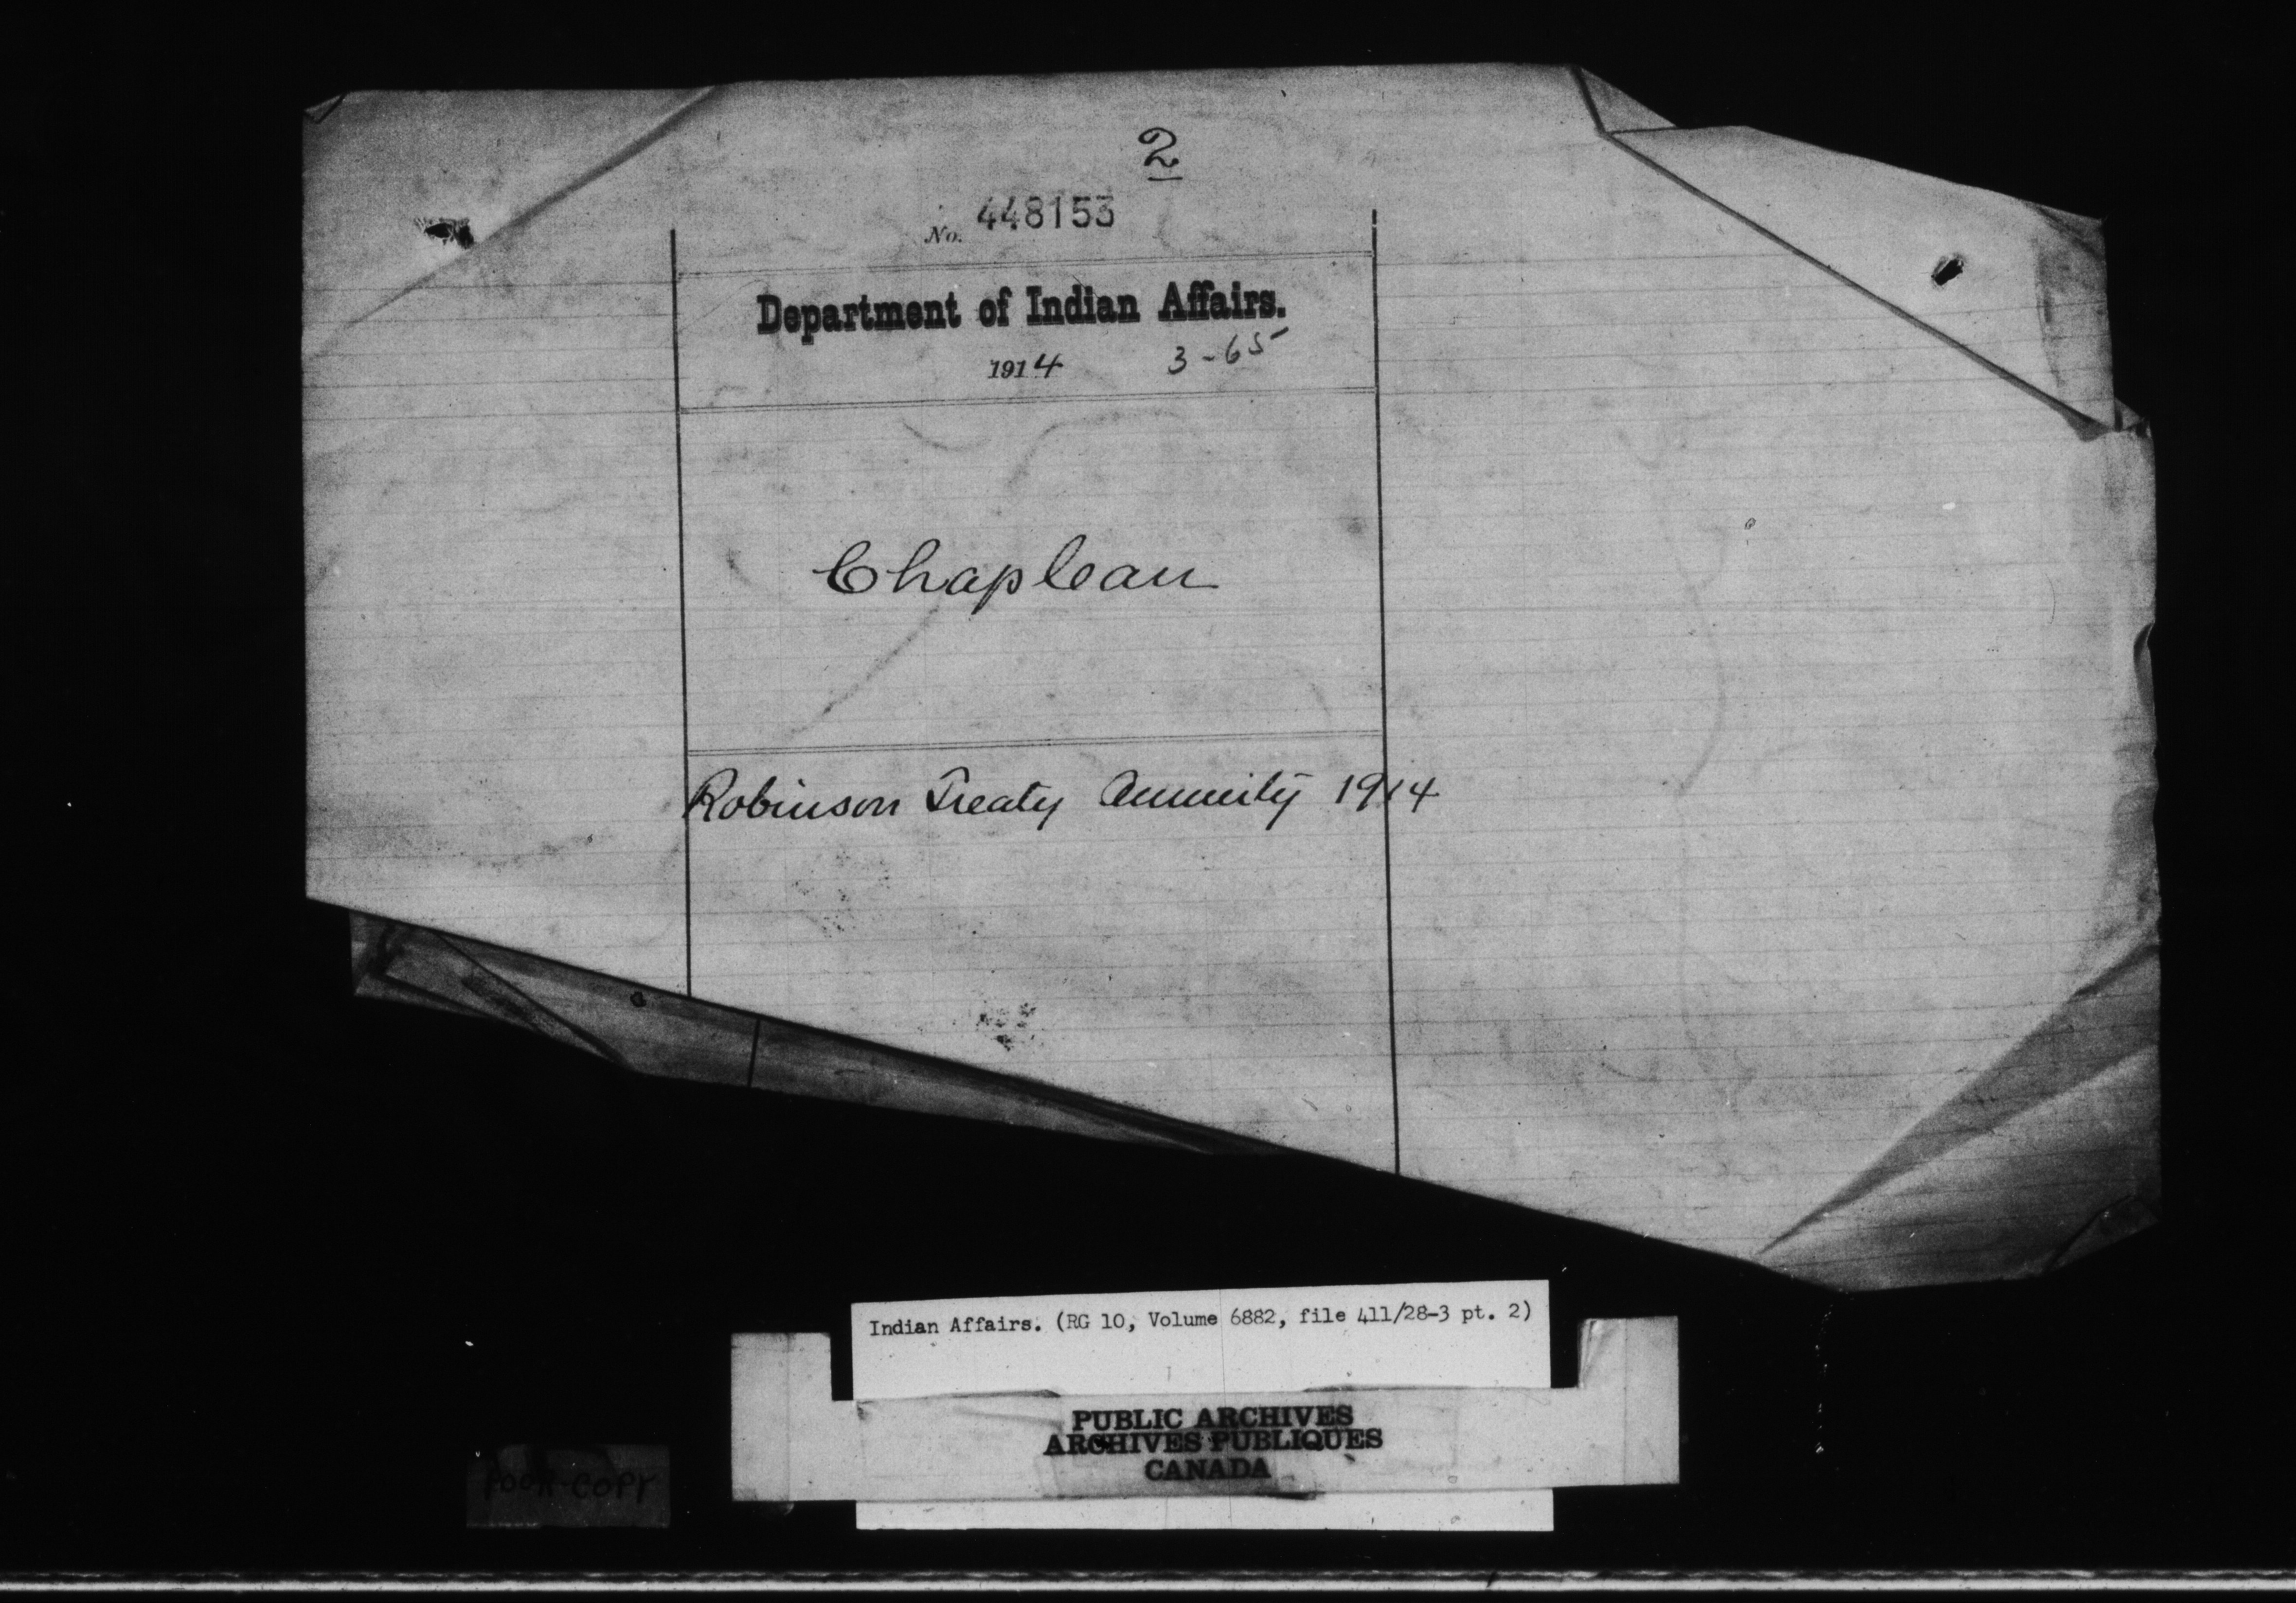 2
No. 448153
Department of Indian Affairs.
1914 3-65
Chapleau
Robinson Treaty Annuity 1914
Indian Affairs. (RG 10, Volume 6882, file 411/28-3 pt. 2)
PUBLIC ARCHIVES
ARCHIVES PUBLIQUES
CANADA
POOR COPY